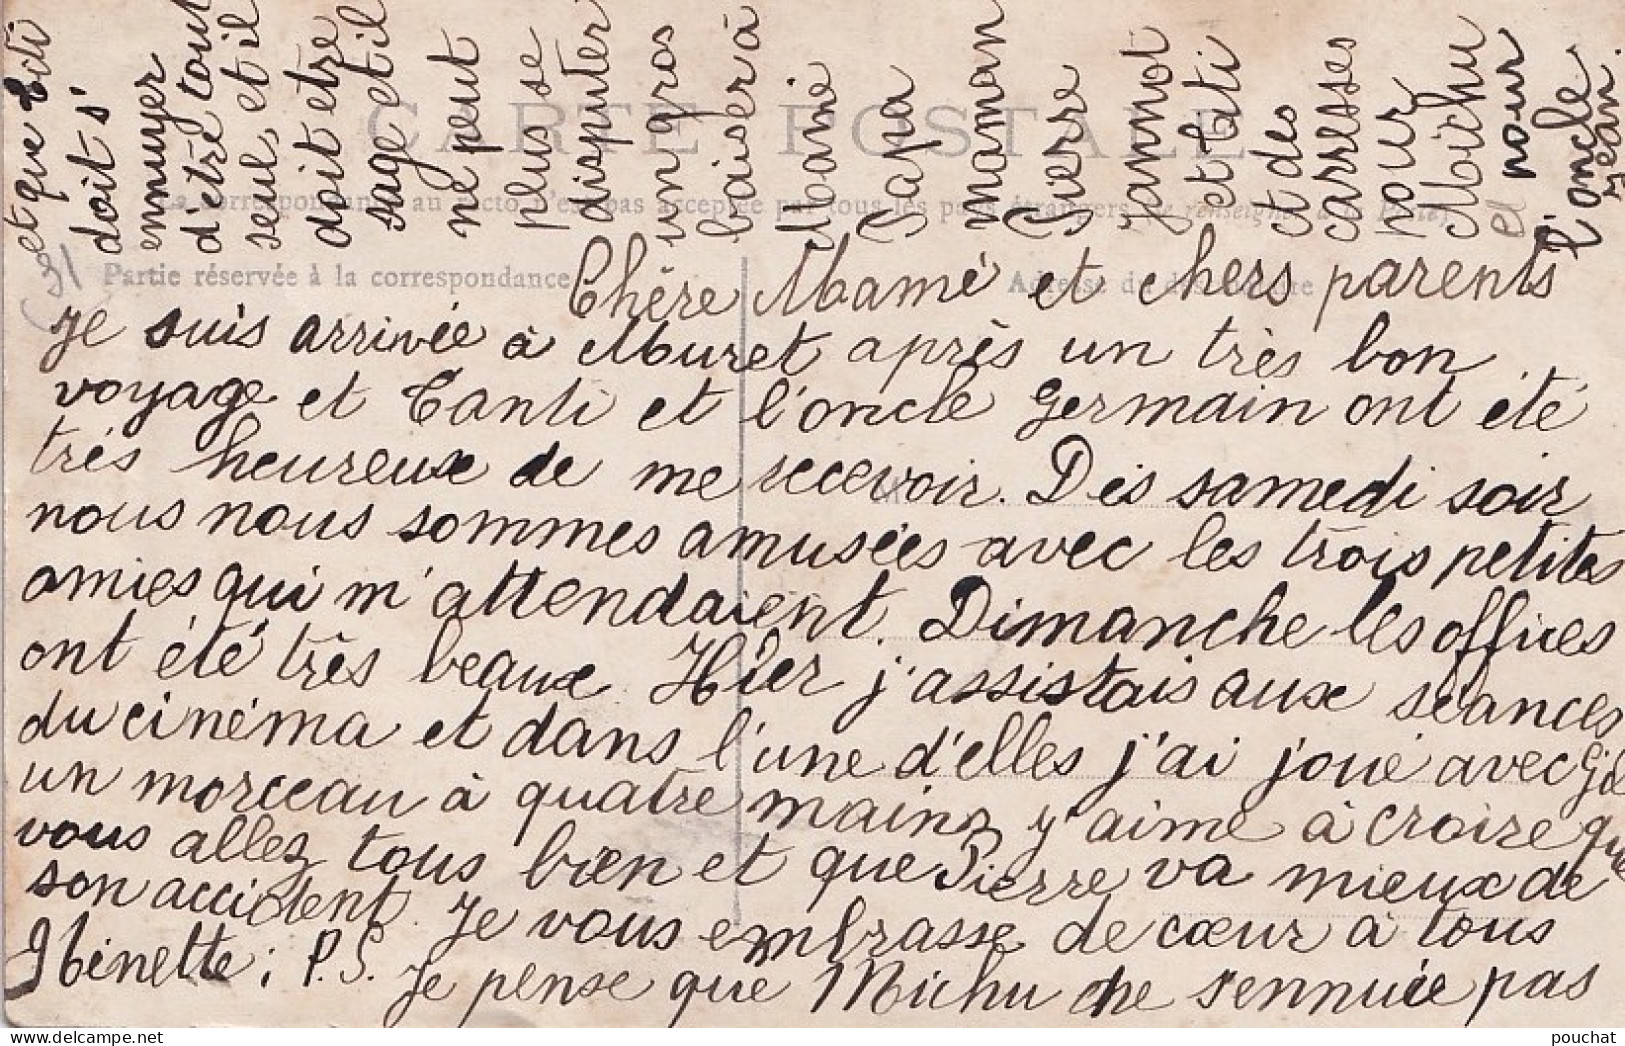 CARTE POSTALE
La correspondance au recto n'est pas acceptée par tous les pays étrangers (se renseigner à la Poste)
Partie réservée à la correspondance
Adresse du destinataire
Chère Mamé et chers parents
Je suis arrivée à Muret après un très bon
voyage et Tanti et l'oncle Germain ont été
très heureux de me recevoir. Dès samedi soir
nous nous sommes amusées avec les trois petites
amies qui m'attendaient. Dimanche les offices
ont été très beaux Hier j'assistais aux séances
du cinéma et dans l'une d'elles j'ai joué avec
un morceau à quatre mains j'aime à croire que
vous allez tous bien et que Pierre va mieux de
son accident. Je vous embrasse de cœur à tous
Ninette ; P.S. Je pense que Michu ne s'ennuie pas
et que Titi
doit s'
ennuyer
d'être tout
seul, et il
doit être
sage et il
ne peut
plus se
disputer
un gros
baiser à
Mamé
Papa
maman
Pierre
Jannot
et tati
et des
carresses
pour
Moichu
et
pour
l'oncle
Jean.
pouchat